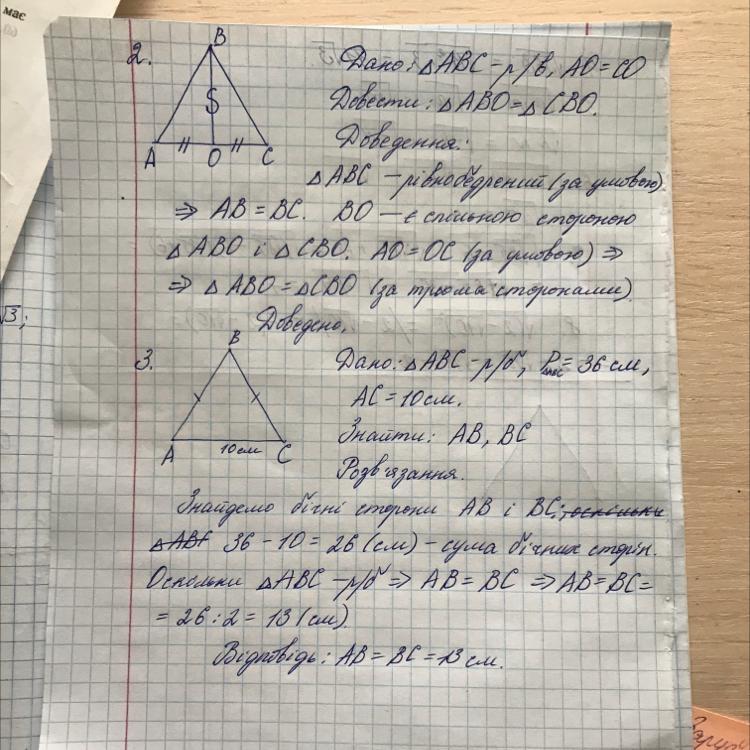 має
2.
B
A
O
C
Дано: △ABC – р/б, AO = CO
Довести: △ABO = △CBO.
Доведення:
△ABC – рівнобедрений (за умовою)
⇒ AB = BC. BO – є спільною стороною
△ABO і △CBO. AO = OC (за умовою) ⇒
⇒ △ABO = △CBO (за трьома сторонами).
Доведено.
√3;
3.
B
A
10см
C
Дано: △ABC – р/б, P△ABC = 36 см,
AC = 10 см.
Знайти: AB, BC
Розв'язання.
Знайдемо бічні сторони AB і BC; оскільки
△ABC 36 – 10 = 26 (см) – сума бічних сторін.
Оскільки △ABC – р/б ⇒ AB = BC ⇒ AB = BC =
= 26 : 2 = 13 (см).
Відповідь: AB = BC = 13 см.